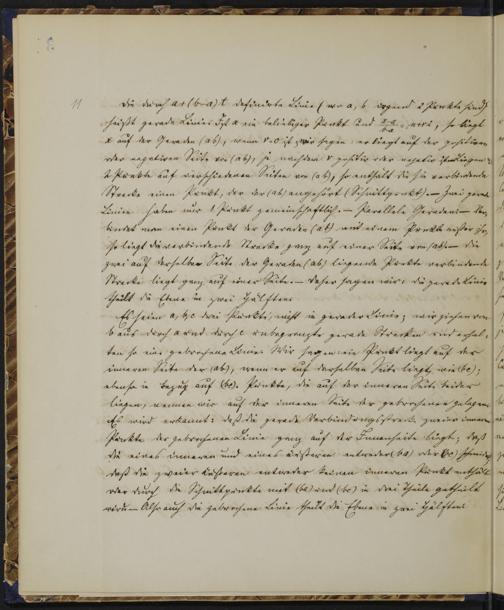 11 Die durch a+(b-a)t definirte Linie (wo a, b irgend 2 Punkte sind)
heißt gerade Linie; Ist x ein beliebiger Punkt und = u+vi, so liegt
x auf der Geraden (ab), wenn v=0 ist; wir sagen: er liegt auf der positiven
oder negativen Seite von (ab), je nachdem v positiv oder negativ ist. Liegen
2 Punkte auf verschiedenen Seiten von (ab), so enthält die sie verbindende
Strecke einen Punkt, der (ab) angehört (Schnittpunkt). — Zwei gerade
Linien haben nur 1 Punkt gemeinschaftlich. — Parallele Geraden. — Ver-
bindet man einen Punkt der Geraden (ab) mit einem Punkte außer ihr,
so liegt die verbindende Strecke ganz auf einer Seite von (ab). — Die
zwei auf derselben Seite der Geraden (ab) liegende Punkte verbindende
Strecke liegt ganz auf einer Seite. — Daher sagen wir: die gerade Linie
theilt die Ebene in zwei Hälften.
Es seien a, b, c drei Punkte, nicht in gerader Linie; wir ziehen von
b aus durch a und durch c unbegrenzte gerade Strecken und erhal-
ten so eine gebrochene Linie. Wir sagen ein Punkt liegt auf der
inneren Seite der (ab), wenn er auf derselben Seite liegt, wie (c);
ebenso in bezug auf (bc). Punkte, die auf der inneren Seite beider
liegen, nennen wir auf der inneren Seite der gebrochenen gelegen.
Es wird erkannt: daß die gerade Verbindungsstrecke zweier inneren
Punkte der gebrochenen Linie ganz auf der Innenseite liegt; daß
die eines inneren und eines äußeren entweder (ba) oder (bc) schneidet,
daß die zweier äußeren entweder keinen inneren Punkt enthält
oder durch die Schnittpunkte mit (ba) und (bc) in drei Theile getheilt
wird. — Also auch die gebrochene Linie theilt die Ebene in zwei Hälften.